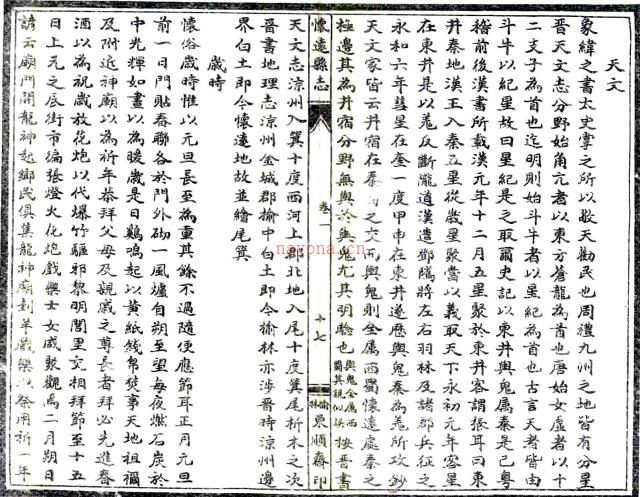 天文
象緯之書太史掌之所以敬天勸民也周禮九州之地皆有分星
晉天文志分野始角亢者以東方蒼龍為首也唐始女虛者以十
二支子為首也迄明則始斗牛者以星紀為首也古言天者皆由
斗牛以紀星故曰星紀是之取爾史記以東井輿鬼屬秦是已粵
稽前後漢書所載漢元年十二月五星聚於東井客謂張耳曰東
井秦地漢王入秦五星從歲星聚當以義取天下永初元年客星
在東井是以羌反斷隴道漢遣鄧隲將左右羽林及諸郡兵征之
永和六年彗星在奎一度甲申在東井遂歷輿鬼秦為羌所攻鈔
天文家皆云井宿在秦之交而輿鬼則全屬西蜀懷遠處秦之
極邊其為井宿分野無與於輿鬼尤其明驗也輿鬼全屬西蜀其說似誤按晉書
懷遠縣志 卷一 十七 榆林東順齋印
天文志涼州入箕十度西河上郡北地入尾十度箕尾析木之次
晉書地理志涼州金城郡榆中白土即今榆林亦涉晉時涼州邊
界白土即今懷遠地故並繪尾箕
歲時
懷俗歲時惟以元旦長至為重其餘不過隨便應節耳正月元旦
前一日門貼春聯各於門外砌一風爐自朔至望每夜燃石炭於
中光輝如晝以為暖歲是日雞鳴起以黃紙錢帛焚事天地祖禰
及附近神廟以為祈年恭拜父母及親戚之尊長者拜必先進春
酒以為祝歲放花炮以代爆竹驅邪黎明閭里交相拜節至十五
日上元之辰街市徧張燈火花炮戲樂士女咸聚觀焉二月朔日
諺云廟門開龍神起鄉民俱集龍神廟刲羊戲樂以祭用祈一年
nayona.cn